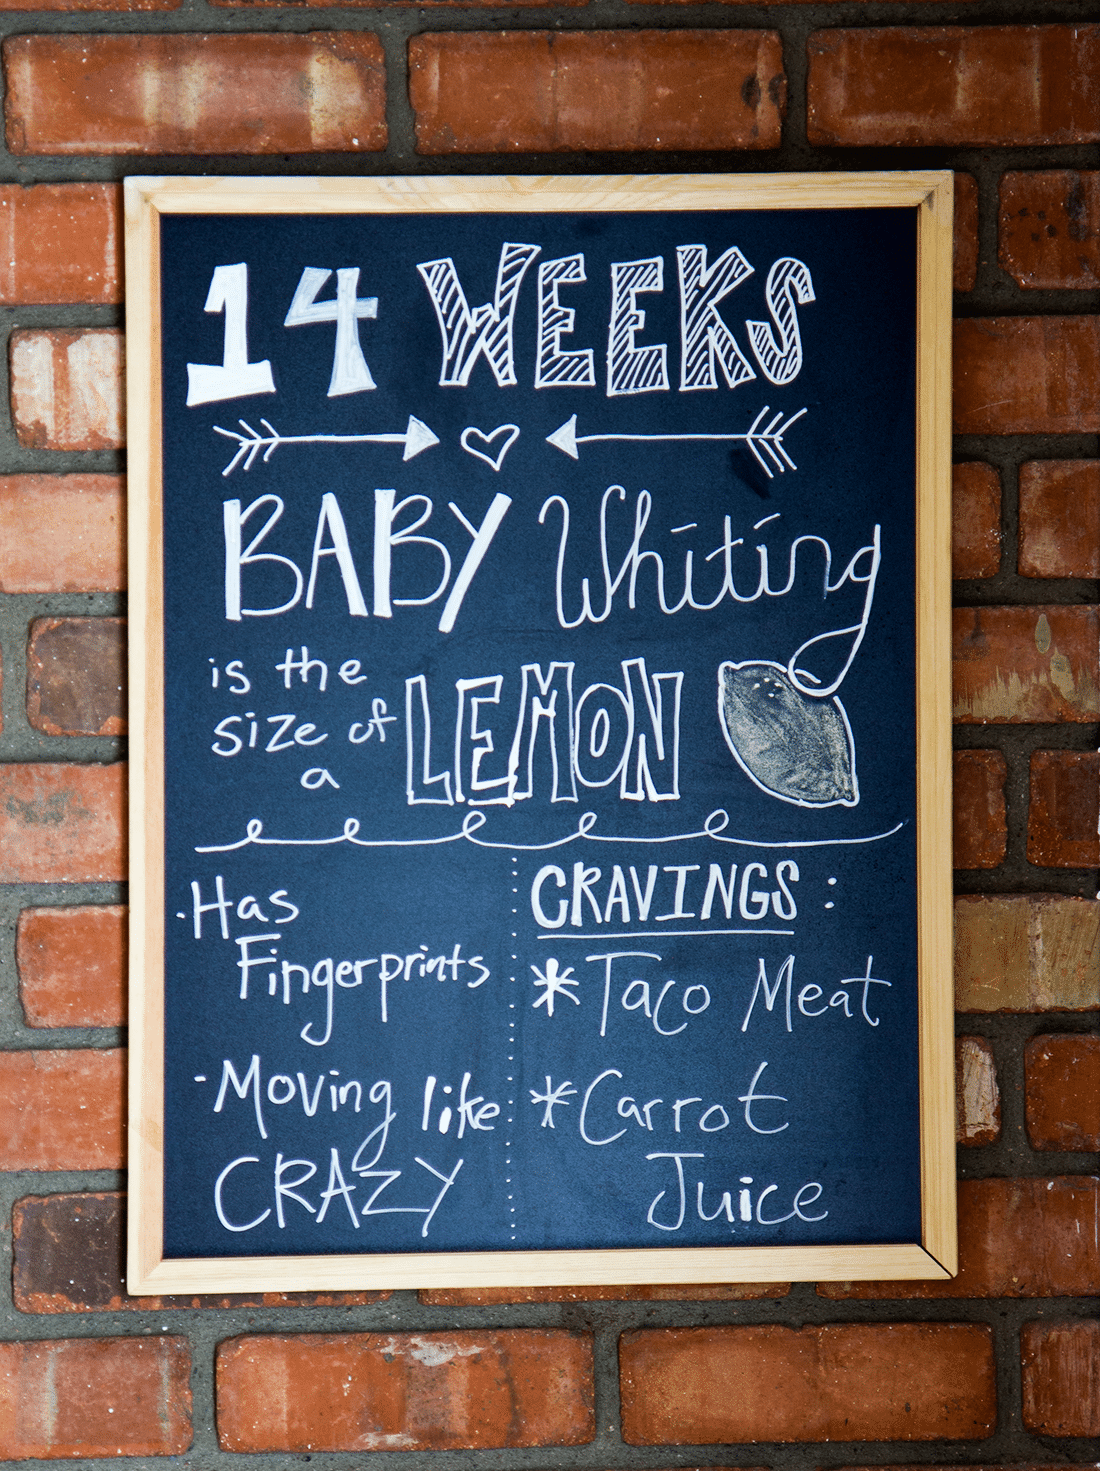 14 WEEKS
BABY Whiting
is the
size of
a
LEMON
·Has
Fingerprints
·Moving like
CRAZY
CRAVINGS:
*Taco Meat
*Carrot
Juice